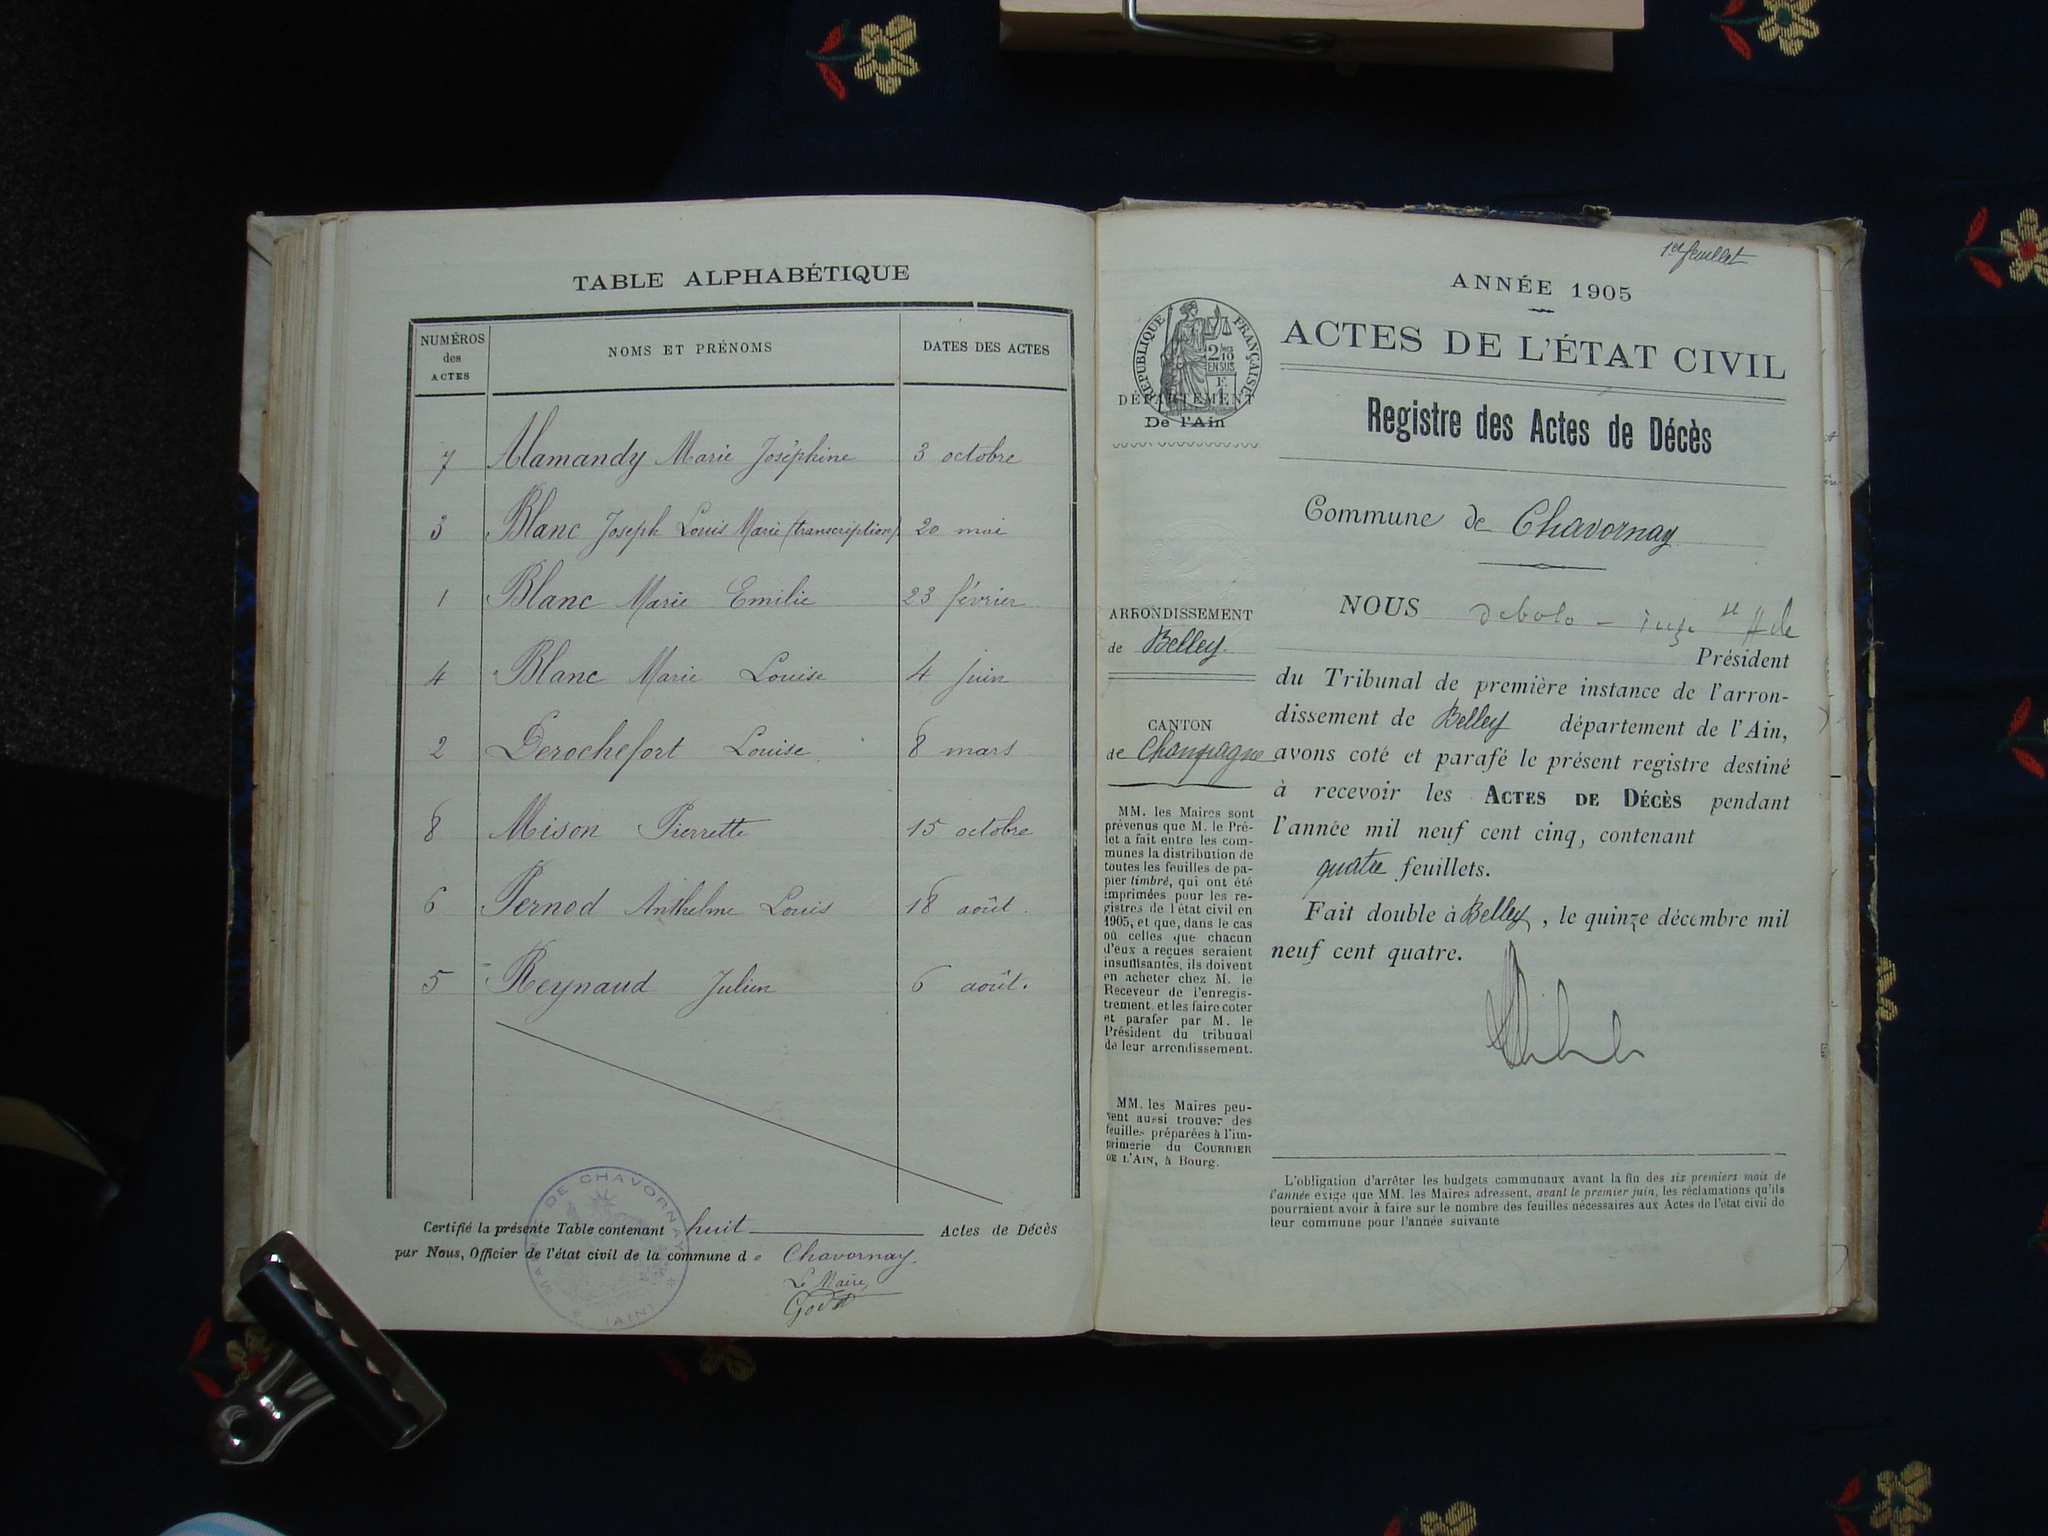 TABLE ALPHABÉTIQUE
NUMÉROS des ACTES NOMS ET PRÉNOMS DATES DES ACTES
7 Alamandy Marie Joséphine 3 octobre
3 Blanc Joseph Louis Marie (transcription) 20 mai
1 Blanc Marie Emilie 23 février
4 Blanc Marie Louise 4 juin
2 Derochefort Louise 8 mars
8 Mison Pierrette 15 octobre
6 Pernod Anthelme Louis 18 août.
5 Reynaud Julien 6 août.
Certifié la présente Table contenant huit Actes de Décès
par Nous, Officier de l'état civil de la commune de Chavornay.
Le Maire,
MAIRIE DE CHAVORNAY * (AIN) *
1er feuillet
ANNÉE 1905
ACTES DE L'ÉTAT CIVIL
Registre des Actes de Décès
Commune de Chavornay
RÉPUBLIQUE FRANÇAISE
2/10
EN SUS
DÉPARTEMENT
De l'Ain
ARRONDISSEMENT
de Belley.
CANTON
de Champagne
MM. les Maires sont
prévenus que M. le Pré-
fet a fait entre les com-
munes la distribution de
toutes les feuilles de pa-
pier timbré, qui ont été
imprimées pour les re-
gistres de l'état civil en
1905, et que, dans le cas
où celles que chacun
d'eux a reçues seraient
insuffisantes, ils doivent
en acheter chez M. le
Receveur de l'enregis-
trement et les faire coter
et parafer par M. le
Président du tribunal
de leur arrondissement.
MM. les Maires peu-
vent aussi trouver des
feuilles préparées à l'im-
primerie du COURRIER
DE L'AIN, à Bourg.
NOUS
Président
du Tribunal de première instance de l'arron-
dissement de Belley département de l'Ain,
avons coté et parafé le présent registre destiné
à recevoir les ACTES DE DÉCÈS pendant
l'année mil neuf cent cinq, contenant
quatre feuillets.
Fait double à Belley, le quinze décembre mil
neuf cent quatre.
L'obligation d'arrêter les budgets communaux avant la fin des six premiers mois de
l'année exige que MM. les Maires adressent, avant le premier juin, les réclamations qu'ils
pourraient avoir à faire sur le nombre des feuilles nécessaires aux Actes de l'état civil de
leur commune pour l'année suivante